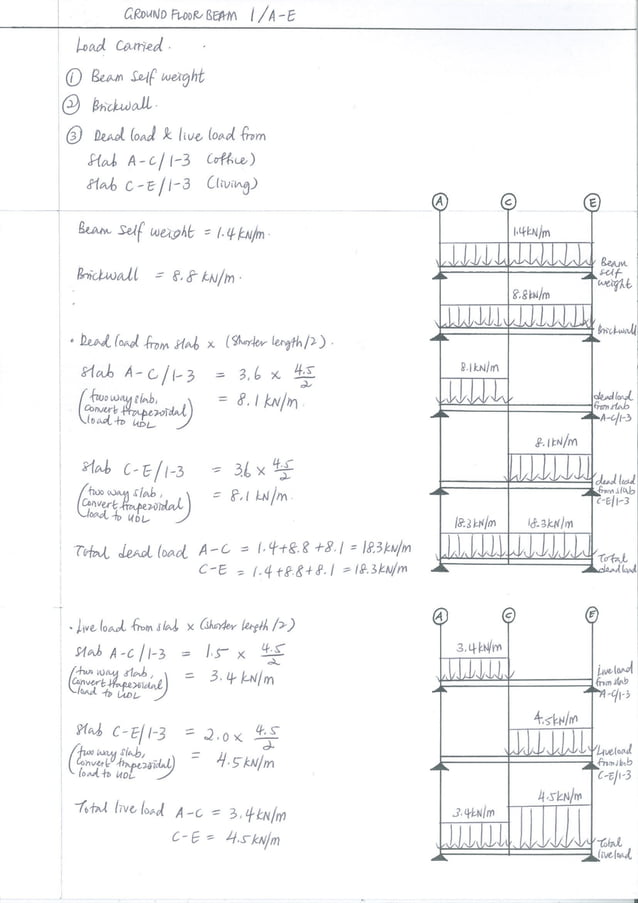 GROUND FLOOR BEAM 1/A-E
Load Carried.
① Beam Self weight
② Brickwall.
③ Dead load & live load from
Slab A-C/1-3 (office)
Slab C-E/1-3 (living)
Beam Self weight = 1.4 kN/m.
Brickwall = 8.8 kN/m.
• Dead load from slab x (shorter length/2).
Slab A-C/1-3 = 3.6 x 4.5/2
(two way slab, convert trapezoidal load to UDL) = 8.1 kN/m.
Slab C-E/1-3 = 3.6 x 4.5/2
(two way slab, convert trapezoidal load to UDL) = 8.1 kN/m.
Total dead load A-C = 1.4+8.8+8.1 = 18.3kN/m
C-E = 1.4+8.8+8.1 = 18.3kN/m
• Live load from slab x (shorter length/2)
Slab A-C/1-3 = 1.5 x 4.5/2
(two way slab, convert trapezoidal load to UDL) = 3.4 kN/m
Slab C-E/1-3 = 2.0 x 4.5/2
(two way slab, convert trapezoidal load to UDL) = 4.5 kN/m
Total live load A-C = 3.4kN/m
C-E = 4.5kN/m
A C E
1.4kN/m
Beam self weight
8.8kN/m
Brickwall
8.1kN/m
dead load from slab A-C/1-3
8.1kN/m
dead load from slab C-E/1-3
18.3kN/m 18.3kN/m
Total dead load
A C E
3.4kN/m
Live load from slab A-C/1-3
4.5kN/m
Live load from slab C-E/1-3
3.4kN/m 4.5kN/m
Total live load